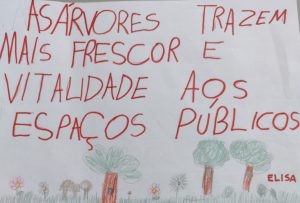 AS ÁRVORES TRAZEM
MAIS FRESCOR E
VITALIDADE AOS
ESPAÇOS PÚBLICOS
ELISA